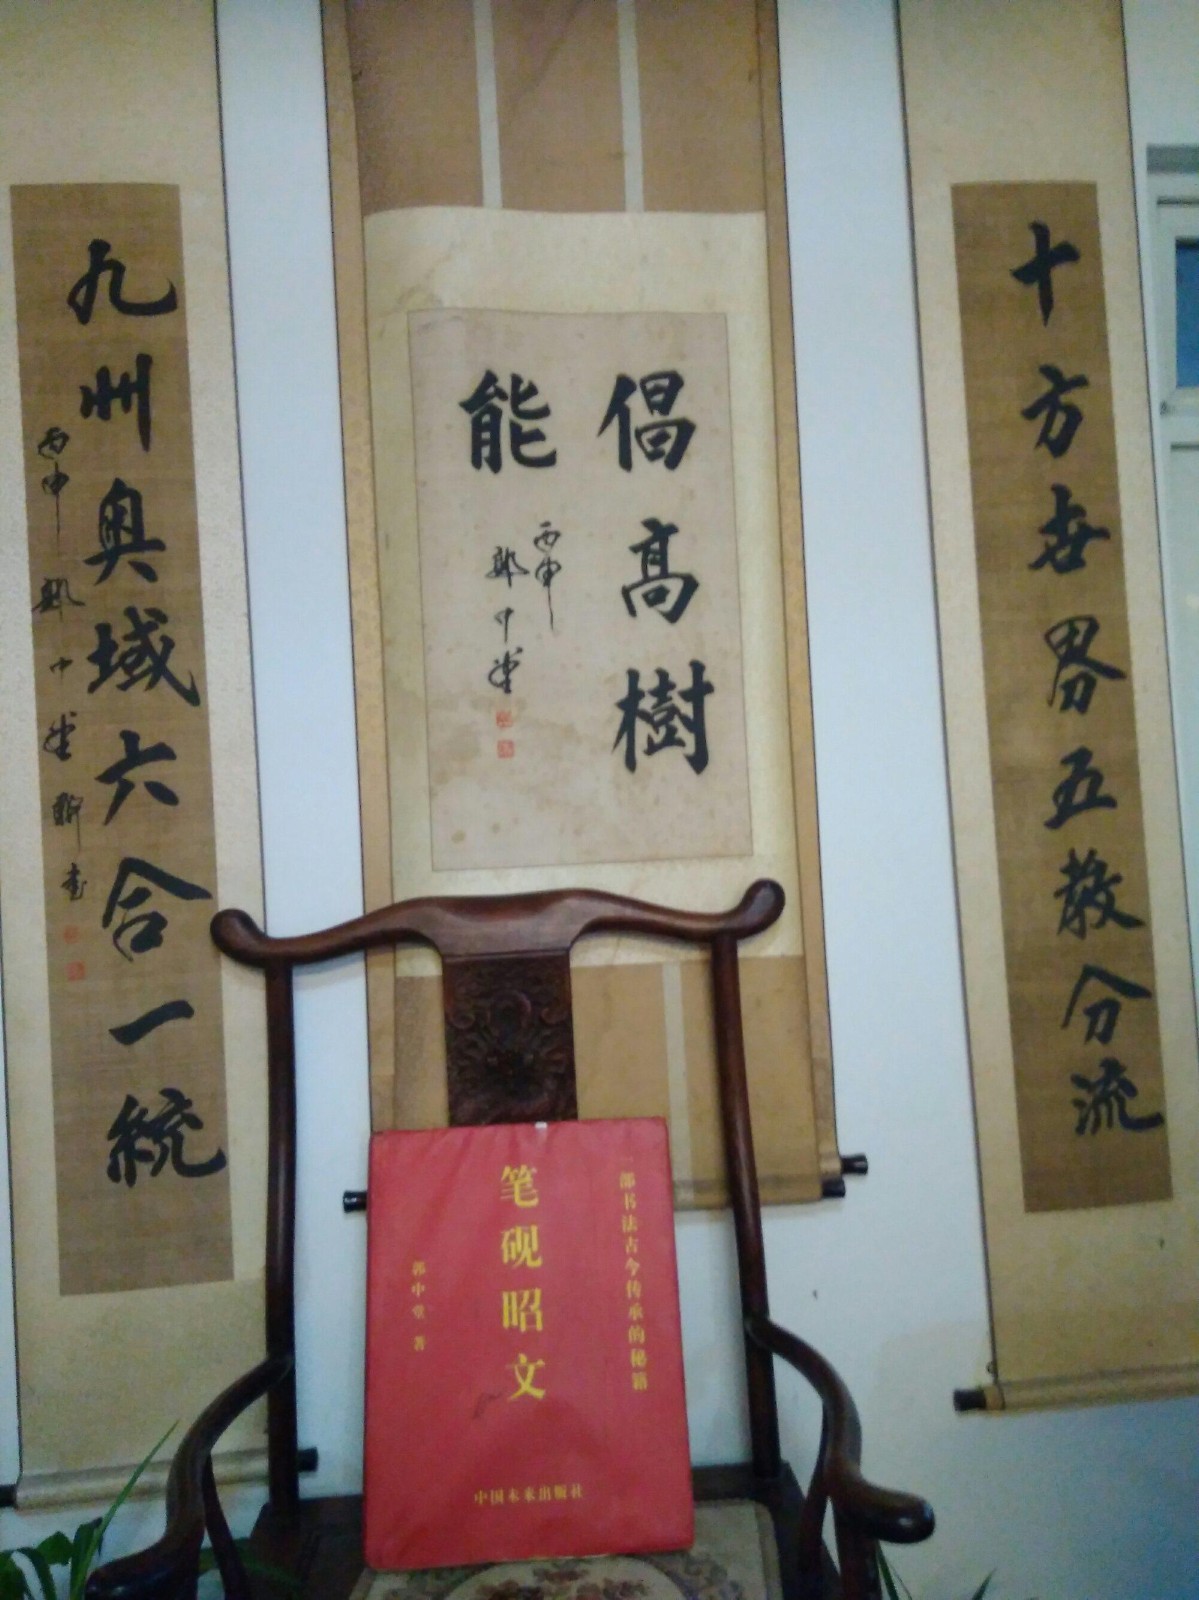 十方世界五教分流
倡高樹
能
丙申
郭中堂
九州奥域六合一統
丙申 郭中堂 聊書
一部书法古今传承的秘籍
笔砚昭文
郭中堂 著
中国未来出版社